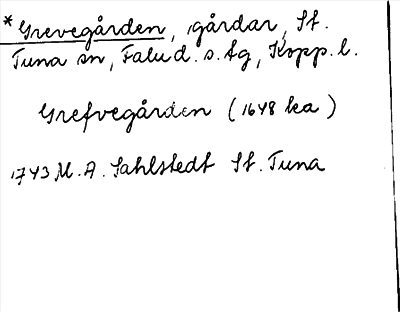 *Grevegården, gårdar, St.
Tuna sn, Falu d. s. tg, Kopp. l.
Grefvegården (1648 lea)
1743 M. A. Sahlstedt St. Tuna